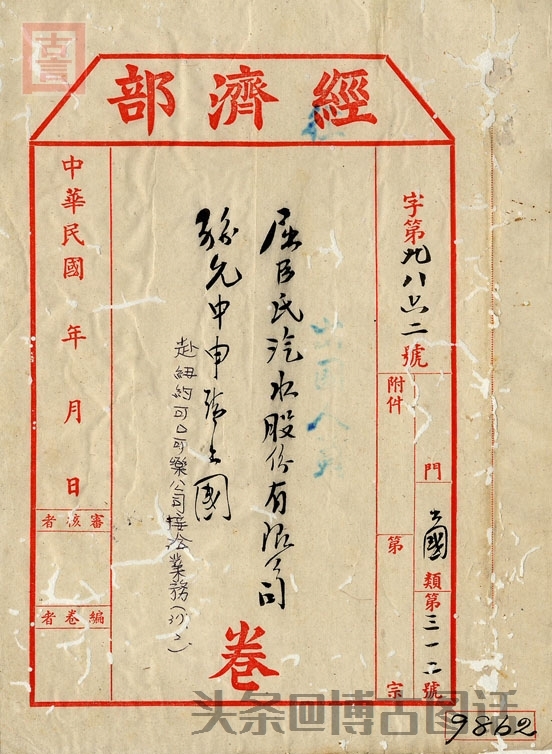 經濟部
字第九八六二號
附件
門
出國類第三一二號
第
宗
屈臣氏汽水股份有限公司
孫允中申請出國
赴紐約可口可樂公司接洽業務
卷
中華民國 年 月 日
審核者
編卷者
9862
头条@博古图话